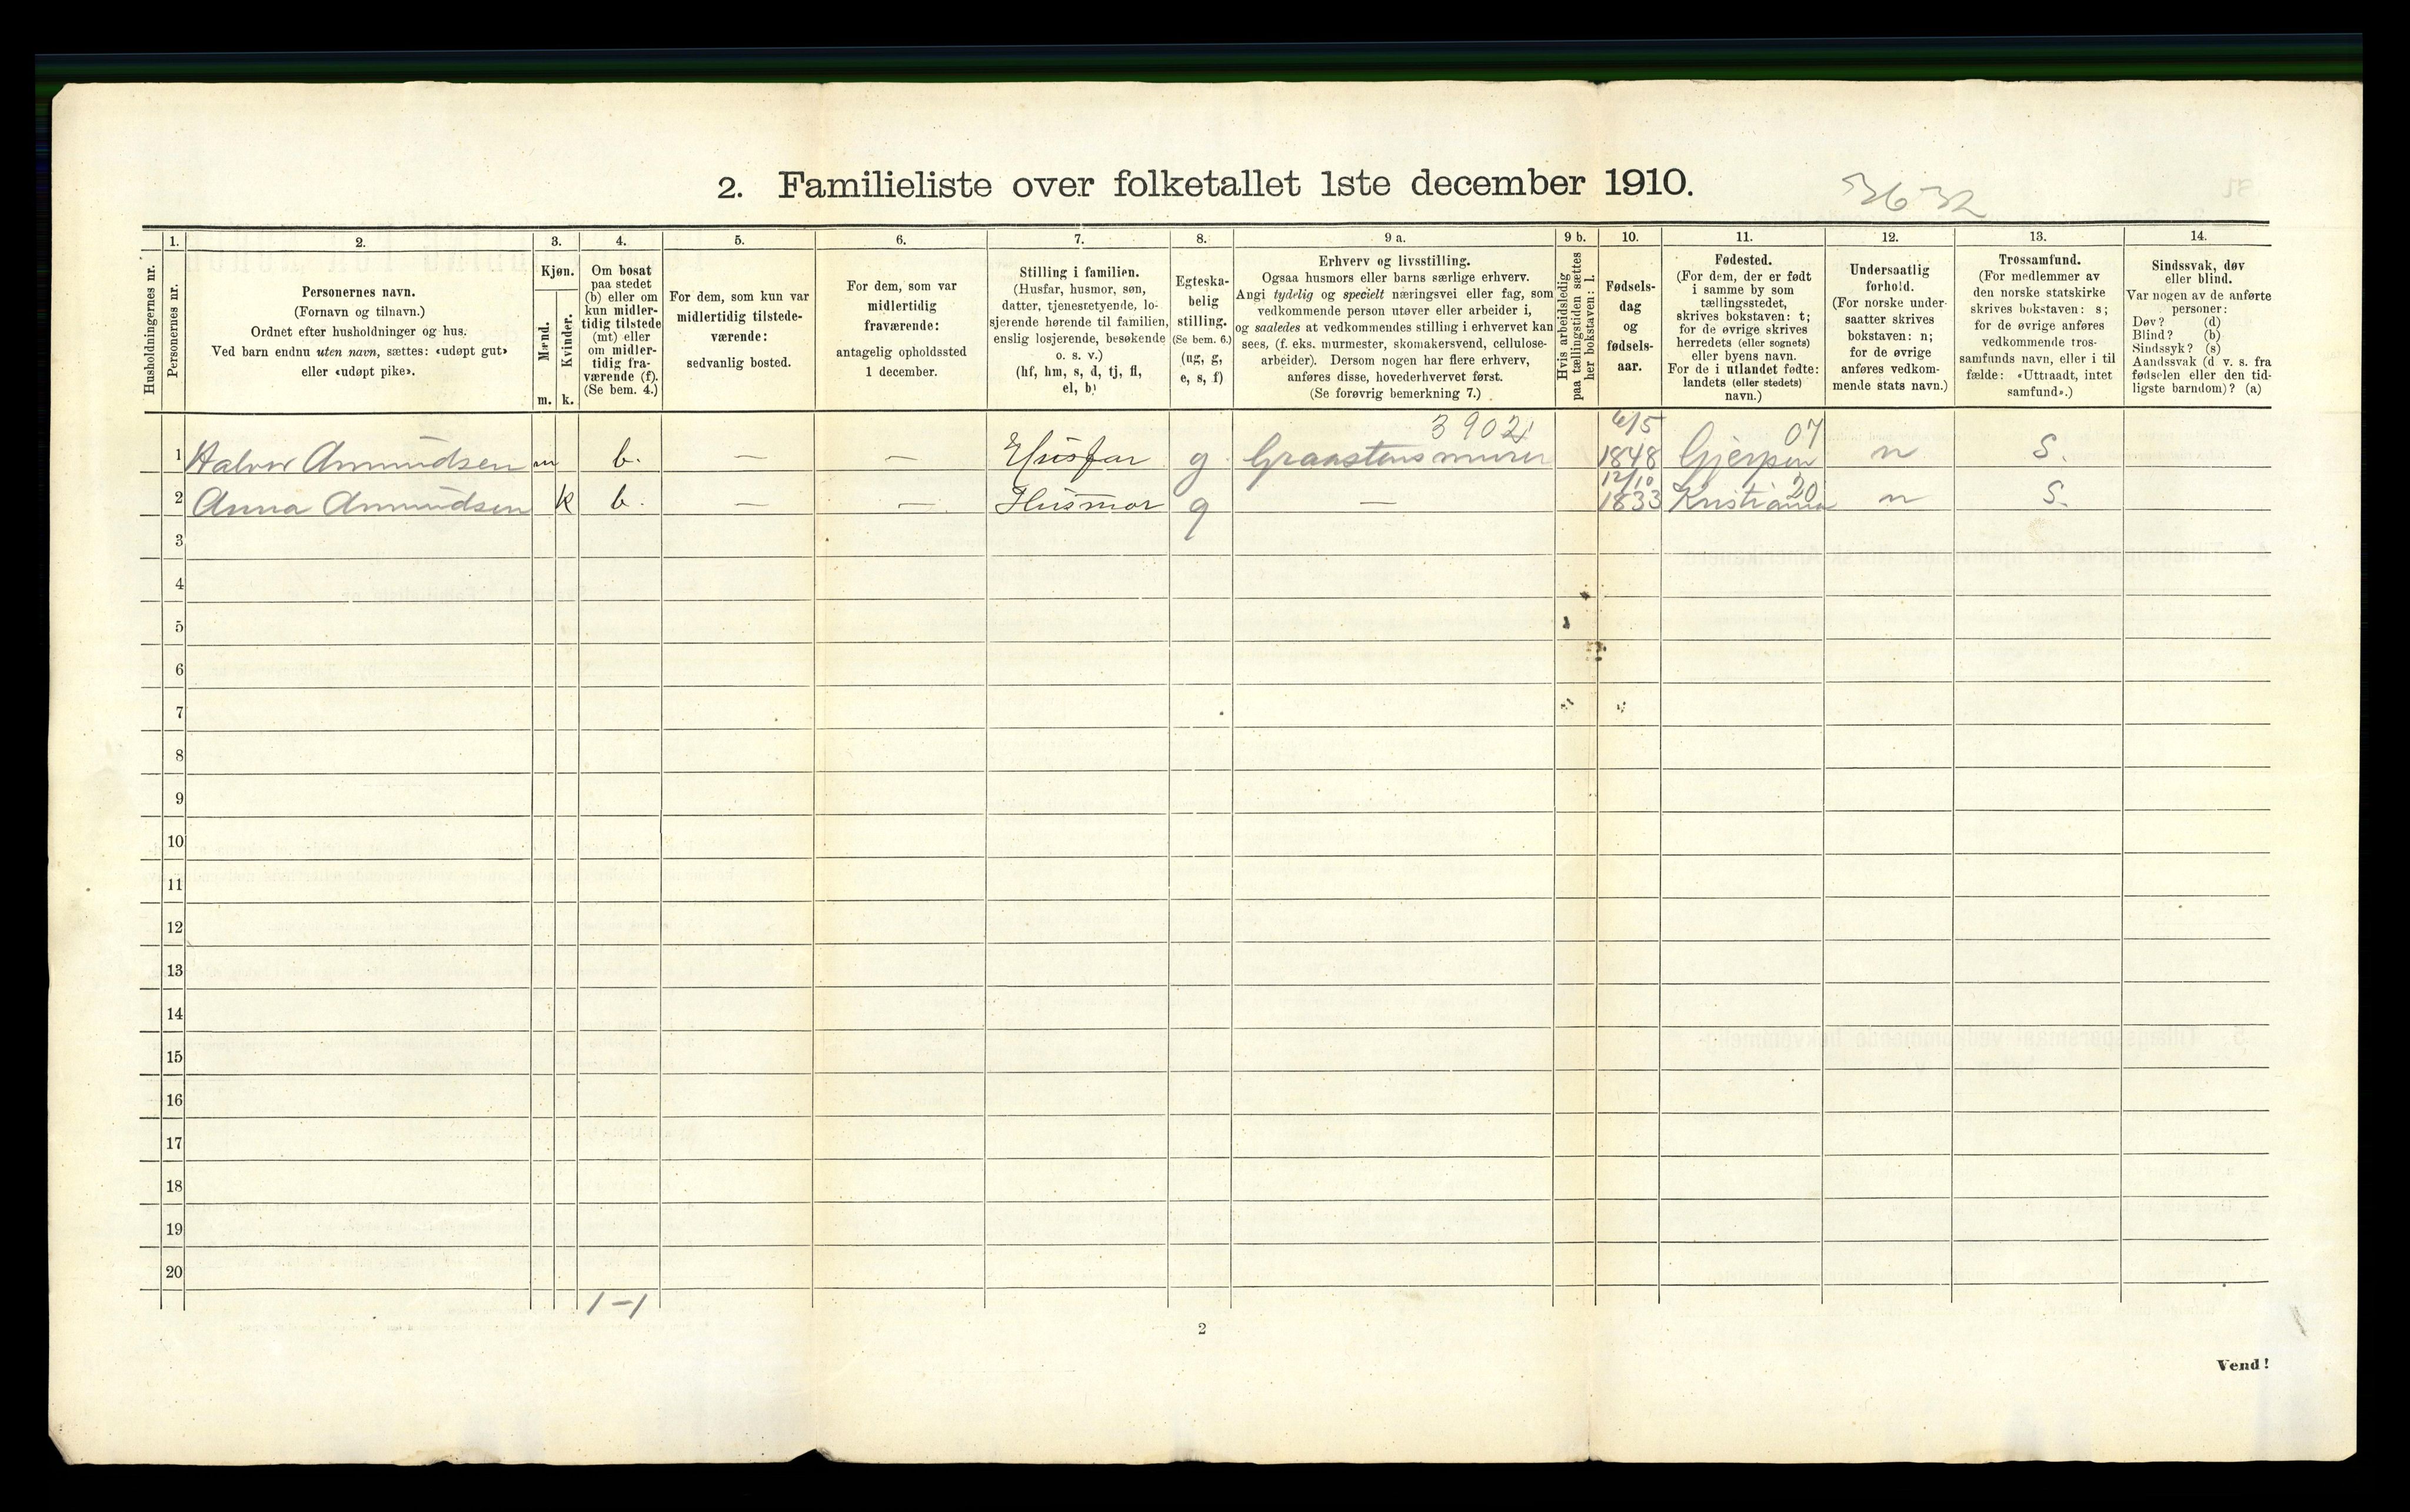 2. Familieliste over folketallet 1ste december 1910.
3632
Husholdningernes nr.
1.
Personernes nr.
2.
Personernes navn.
(Fornavn og tilnavn.)
Ordnet efter husholdninger og hus.
Ved barn endnu uten navn, sættes: «udøpt gut»
eller «udøpt pike».
3.
Kjøn.
Mænd.
Kvinder.
m. k.
4.
Om bosat
paa stedet
(b) eller om
kun midler-
tidig tilstede
(mt) eller
om midler-
tidig fra-
værende (f).
(Se bem. 4.)
5.
For dem, som kun var
midlertidig tilstede-
værende:
sedvanlig bosted.
6.
For dem, som var
midlertidig
fraværende:
antagelig opholdssted
1 december.
7.
Stilling i familien.
(Husfar, husmor, søn,
datter, tjenestetyende, lo-
sjerende hørende til familien,
enslig losjerende, besøkende
o. s. v.)
(hf, hm, s, d, tj, fl,
el, b)
8.
Egteska-
belig
stilling.
(Se bem. 6.)
(ug, g,
e, s, f)
9 a.
Erhverv og livsstilling.
Ogsaa husmors eller barns særlige erhverv.
Angi tydelig og specielt næringsvei eller fag, som
vedkommende person utøver eller arbeider i,
og saaledes at vedkommendes stilling i erhvervet kan
sees, (f. eks. murmester, skomakersvend, cellulose-
arbeider). Dersom nogen har flere erhverv,
anføres disse, hovederhvervet først.
(Se forøvrig bemerkning 7.)
9 b.
Hvis arbeidsledig
paa tællingstiden sættes
her bokstaven: l.
10.
Fødsels-
dag
og
fødsels-
aar.
11.
Fødested.
(For dem, der er født
i samme by som
tællingsstedet,
skrives bokstaven: t;
for de øvrige skrives
herredets (eller sognets)
eller byens navn.
For de i utlandet fødte:
landets (eller stedets)
navn.)
12.
Undersaatlig
forhold.
(For norske under-
saatter skrives
bokstaven: n;
for de øvrige
anføres vedkom-
mende stats navn.)
13.
Trossamfund.
(For medlemmer av
den norske statskirke
skrives bokstaven: s;
for de øvrige anføres
vedkommende tros-
samfunds navn, eller i til-
fælde: «Uttraadt, intet
samfund».)
14.
Sindssvak, døv
eller blind.
Var nogen av de anførte
personer:
Døv? (d)
Blind? (b)
Sindssyk? (s)
Aandssvak (d. v. s. fra
fødselen eller den tid-
ligste barndom)? (a)
3902 6/5 07
1 Halvor Amundsen m b. — — Husfar g Graastensmurer 1848 Gjerpen n S.
12/10 20
2 Anna Amundsen k b. — — Husmor g — 1833 Kristiania n S.
3
4
5
6
7
8
9
10
11
12
13
14
15
16
17
18
19
20
1-1
2
Vend!